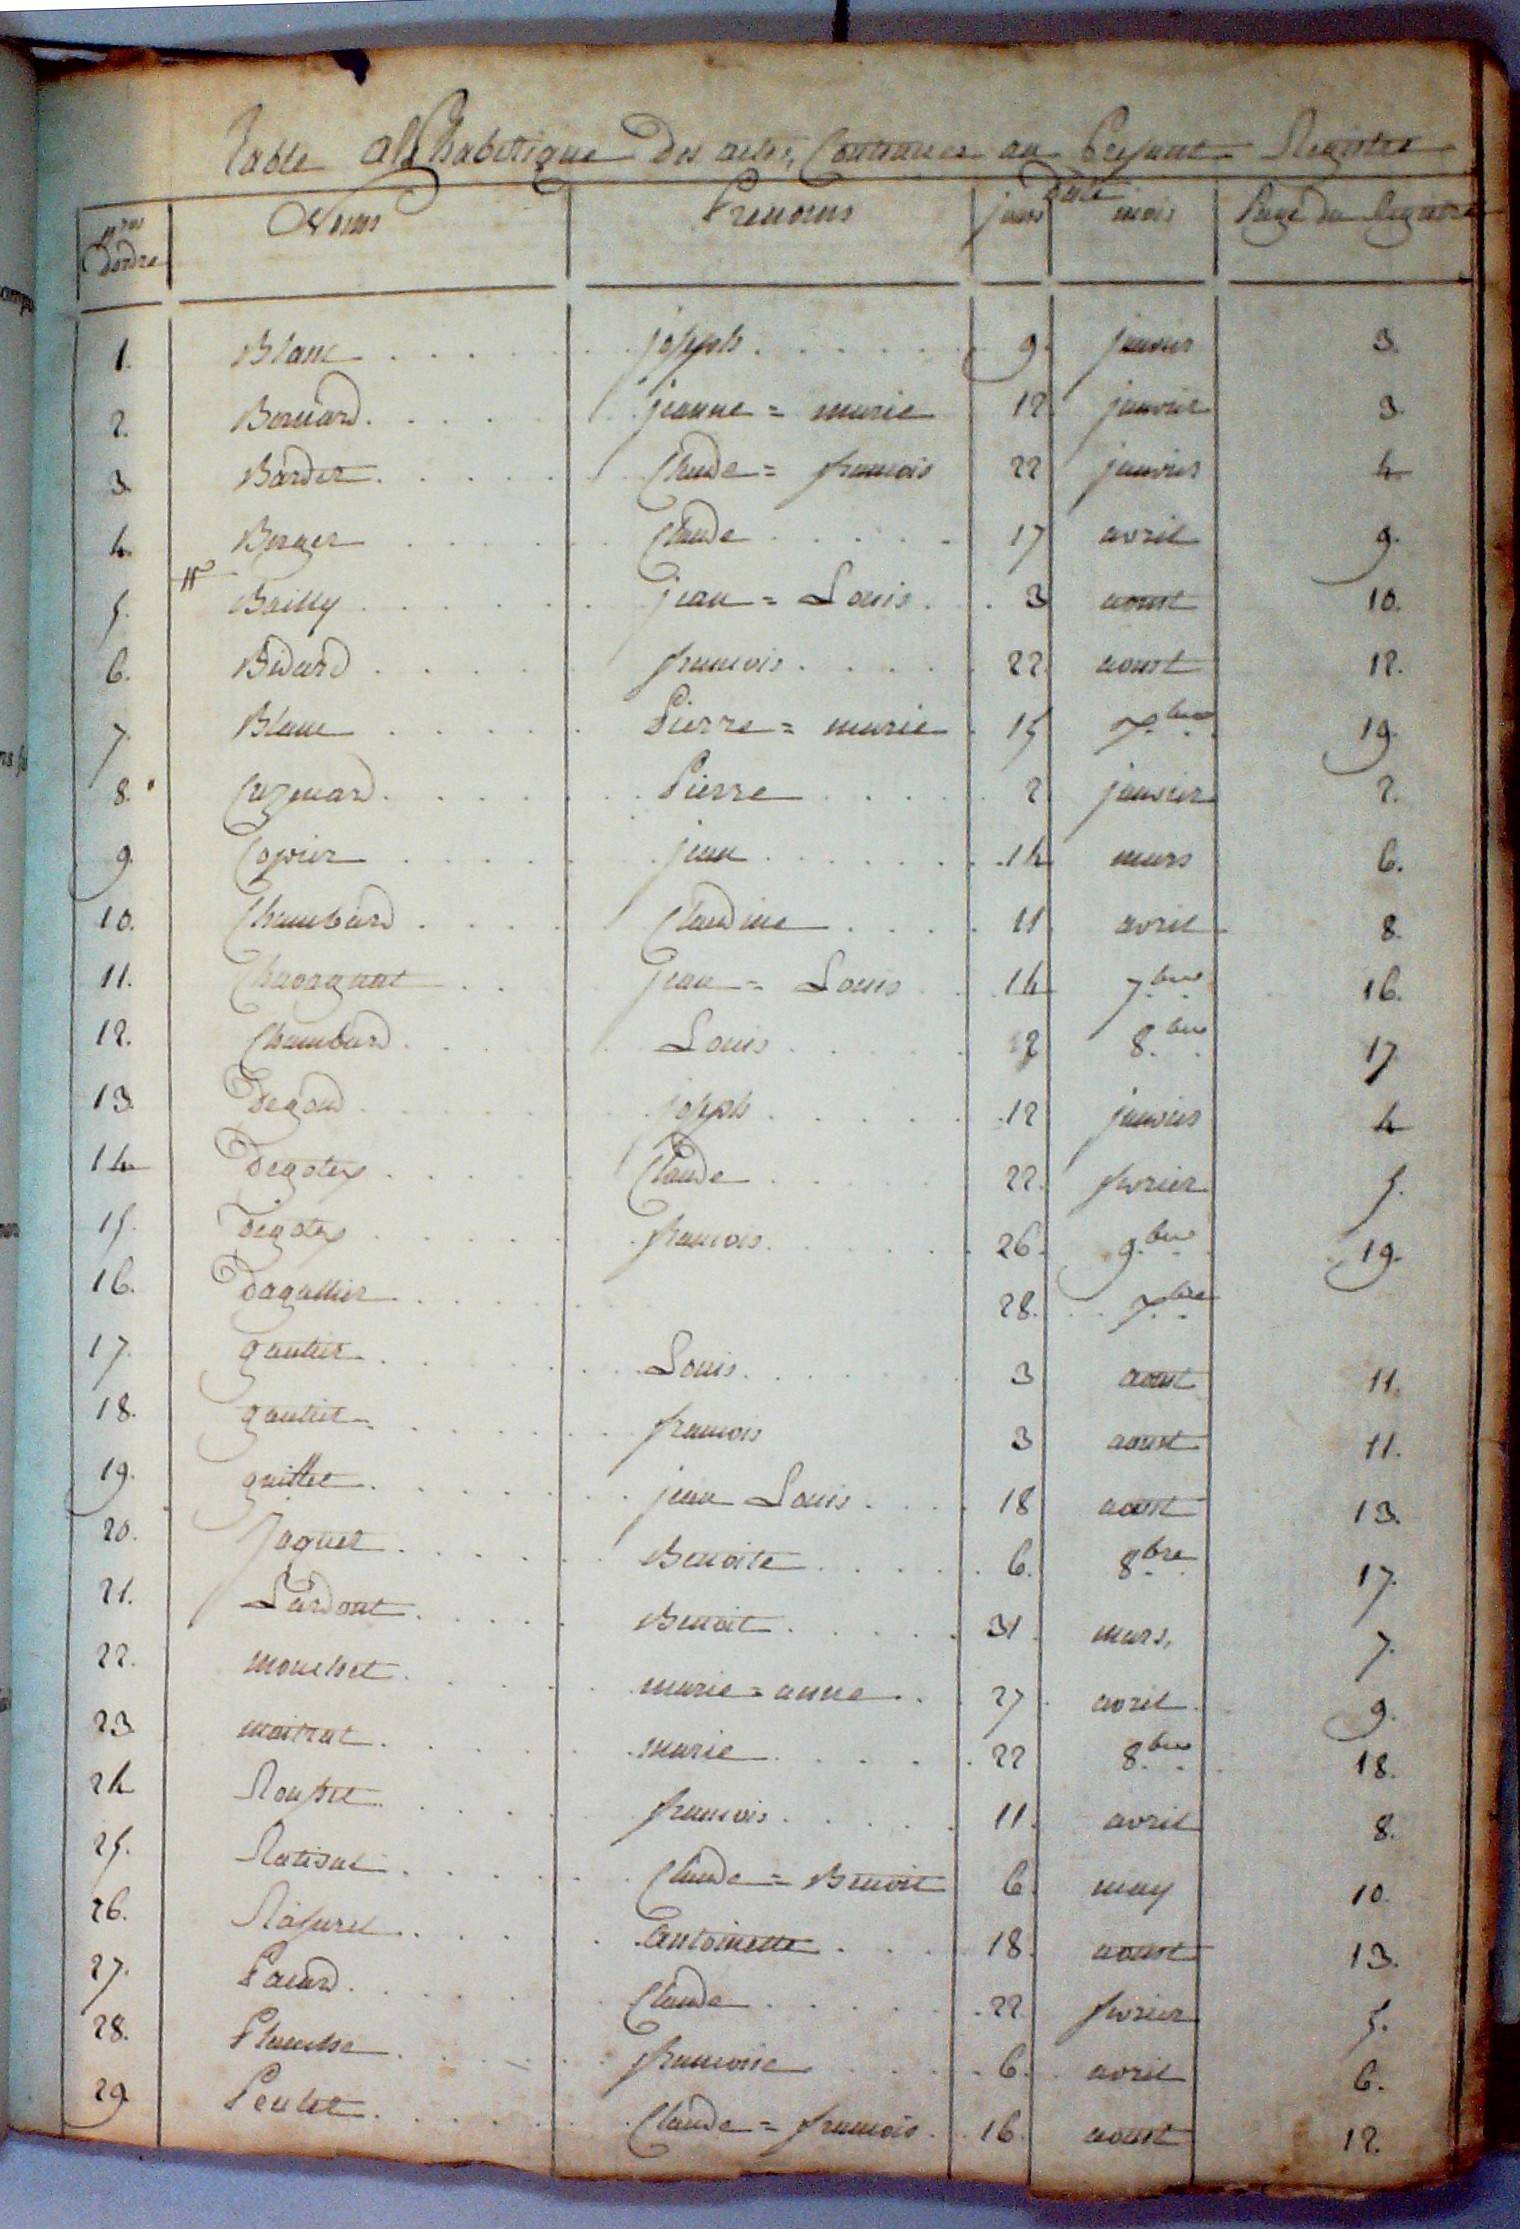 Table alphabetique Des actes, Contenues au Present Registre
nros Dordre Noms Prenoms Date jours mois Page du Registre
1. Blanc joseph 9. janvier 3.
2. Bernard jeanne = marie 12 janvier 3
3 Bardet Claude = francois 22 janvier 4
4. Berger Claude 17 avril 9.
5. Bailly jean = Louis 3 aoust 10.
6. Bidard francois 22. aoust 12.
7. Blanc Pierre = marie 15 7.bre 19.
8. Pierre 2 janvier 2.
9. jean 14 mars 6.
10. Chambard Claudine 11 avril 8.
11. Chavagnat jean = Louis 14 7.bre 16.
12. Chambard Louis 8.bre 17
13. Degoud joseph 12 janvier 4
14 Degotex Claude 22. fevrier 5.
15. Degotex francois 26. 9.bre 19.
16. Dagallier 28. 7.bre
17. gautier Louis 3 aoust 11.
18. francois 3 aoust 11.
19. guillet jean Louis 18 aoust 13.
20. Jaquet Benoite 6. 8.bre 17.
21. Lardont Benoit 31 mars, 7.
22. mouchet marie = anne 27 avril 9.
23 maitrat marie 22 8.bre 18.
24 Rousset francois 11. avril 8.
25. Claude = Benoit 6. may 10.
26. antoinette 18. aoust 13.
27. Pacard Claude 22. fevrier 5.
28. Planche francoise 6. avril 6.
29. Claude = francois 16. aoust 12.